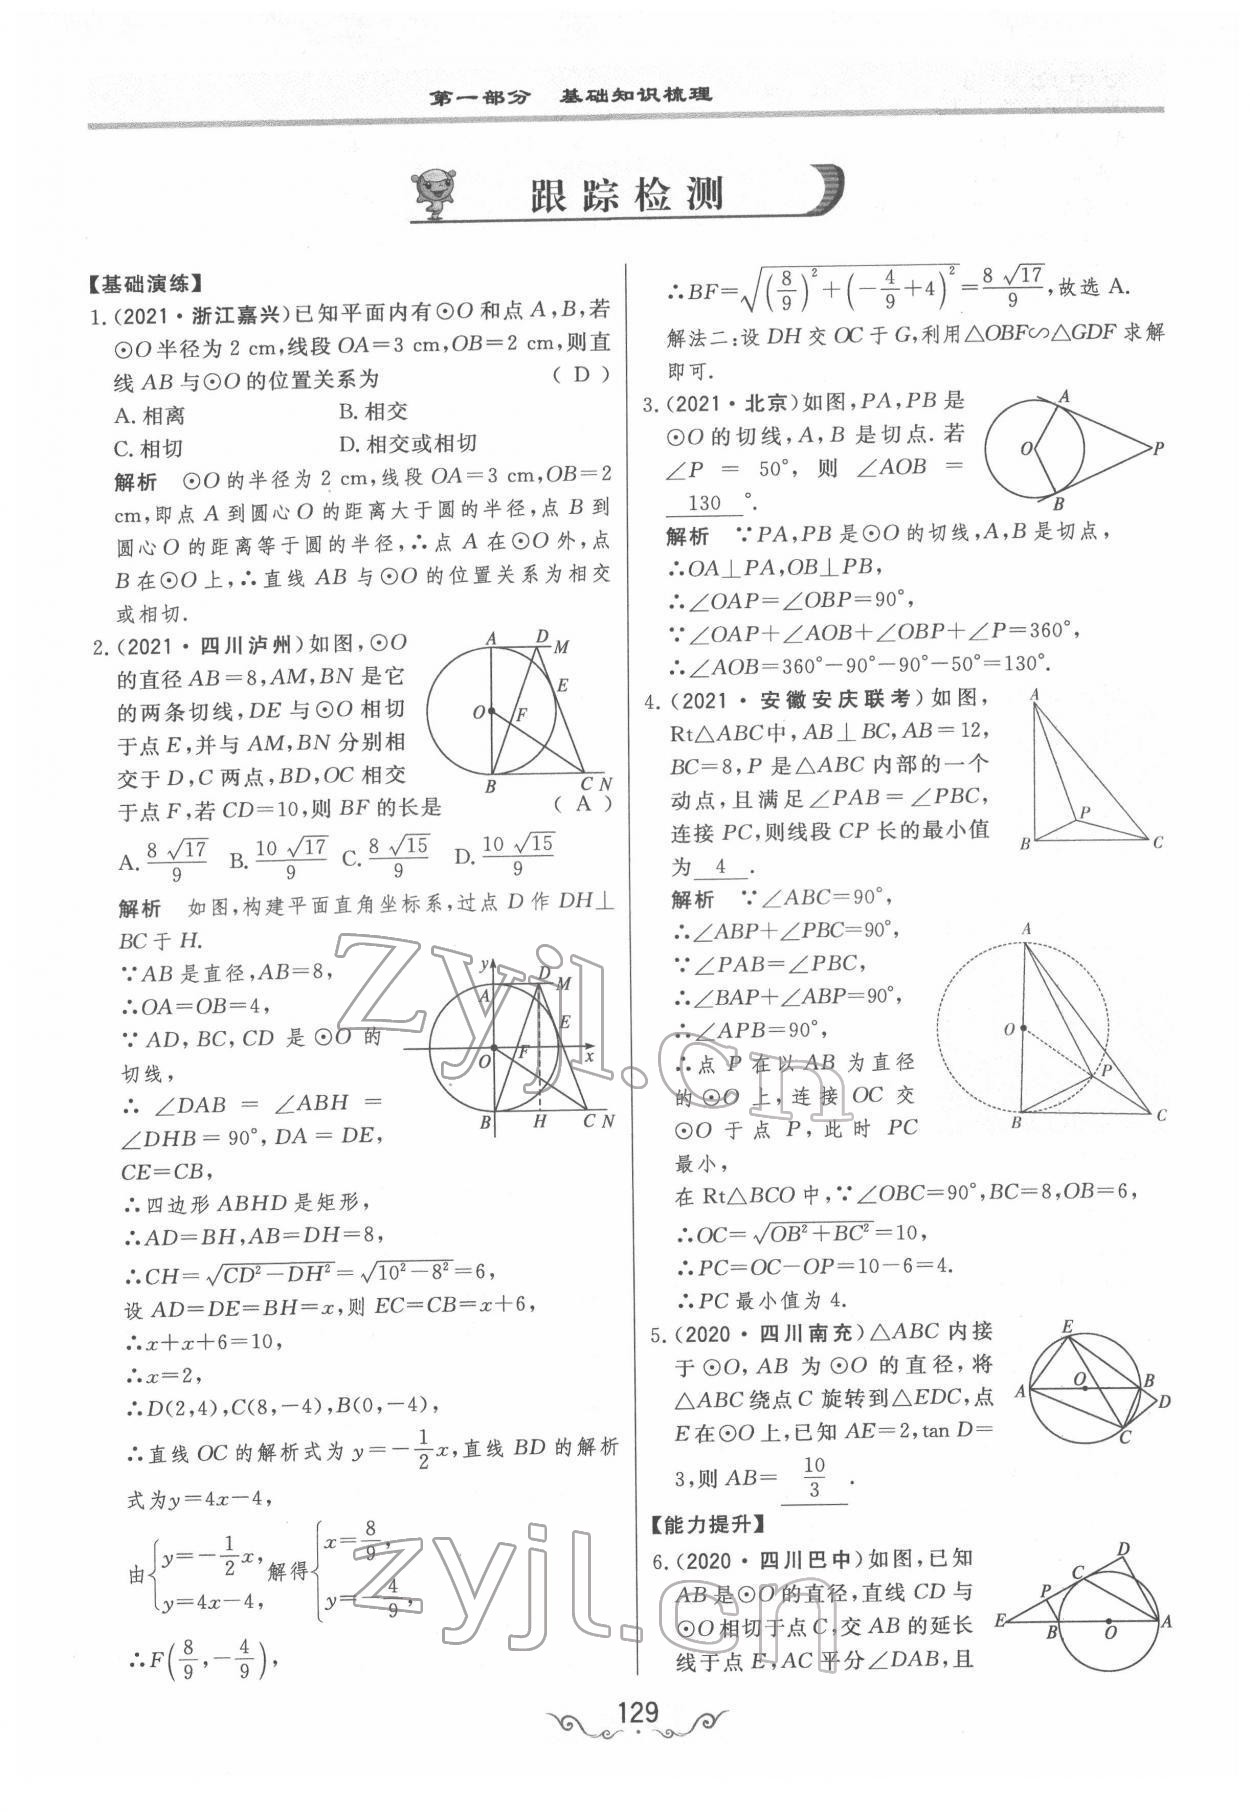 第一部分　基础知识梳理
跟踪检测
【基础演练】
1.(2021·浙江嘉兴)已知平面内有⊙O和点A,B,若
⊙O半径为2 cm,线段OA=3 cm,OB=2 cm,则直
线AB与⊙O的位置关系为 ( D )
A.相离　B.相交
C.相切　D.相交或相切
解析　⊙O的半径为2 cm,线段OA=3 cm,OB=2
cm,即点A到圆心O的距离大于圆的半径,点B到
圆心O的距离等于圆的半径,∴点A在⊙O外,点
B在⊙O上,∴直线AB与⊙O的位置关系为相交
或相切.
2.(2021·四川泸州)如图,⊙O
的直径AB=8,AM,BN是它
的两条切线,DE与⊙O相切
于点E,并与AM,BN分别相
交于D,C两点,BD,OC相交
于点F,若CD=10,则BF的长是 ( A )
A D M
E
O F
B C N
A.8√17/9　B.10√17/9　C.8√15/9　D.10√15/9
解析　如图,构建平面直角坐标系,过点D作DH⊥
BC于H.
∵AB是直径,AB=8,
∴OA=OB=4,
∵AD,BC,CD是⊙O的
切线,
∴∠DAB=∠ABH=
∠DHB=90°,DA=DE,
CE=CB,
y D M
A
E
O F x
B H C N
∴四边形ABHD是矩形,
∴AD=BH,AB=DH=8,
∴CH=√(CD²-DH²)=√(10²-8²)=6,
设AD=DE=BH=x,则EC=CB=x+6,
∴x+x+6=10,
∴x=2,
∴D(2,4),C(8,-4),B(0,-4),
∴直线OC的解析式为y=-1/2x,直线BD的解析
式为y=4x-4,
由{y=-1/2x, y=4x-4, 解得{x=8/9, y=-4/9,
∴F(8/9,-4/9),
∴BF=√((8/9)²+(-4/9+4)²)=8√17/9,故选A.
解法二:设DH交OC于G,利用△OBF∽△GDF求解
即可.
3.(2021·北京)如图,PA,PB是
⊙O的切线,A,B是切点.若
∠P=50°,则∠AOB=
130 °.
A
O P
B
解析　∵PA,PB是⊙O的切线,A,B是切点,
∴OA⊥PA,OB⊥PB,
∴∠OAP=∠OBP=90°,
∵∠OAP+∠AOB+∠OBP+∠P=360°,
∴∠AOB=360°-90°-90°-50°=130°.
4.(2021·安徽安庆联考)如图,
Rt△ABC中,AB⊥BC,AB=12,
BC=8,P是△ABC内部的一个
动点,且满足∠PAB=∠PBC,
连接PC,则线段CP长的最小值
为 4 .
A
P
B C
解析　∵∠ABC=90°,
∴∠ABP+∠PBC=90°,
∵∠PAB=∠PBC,
∴∠BAP+∠ABP=90°,
∴∠APB=90°,
∴点P在以AB为直径
的⊙O上,连接OC交
⊙O于点P,此时PC
最小,
A
O
P
B C
在Rt△BCO中,∵∠OBC=90°,BC=8,OB=6,
∴OC=√(OB²+BC²)=10,
∴PC=OC-OP=10-6=4.
∴PC最小值为4.
5.(2020·四川南充)△ABC内接
于⊙O,AB为⊙O的直径,将
△ABC绕点C旋转到△EDC,点
E在⊙O上,已知AE=2,tan D=
3,则AB= 10/3 .
E
A O B
D
C
【能力提升】
6.(2020·四川巴中)如图,已知
AB是⊙O的直径,直线CD与
⊙O相切于点C,交AB的延长
线于点E,AC平分∠DAB,且
D
C
P
E B O A
129
zyjl.cn
zyjl.cn